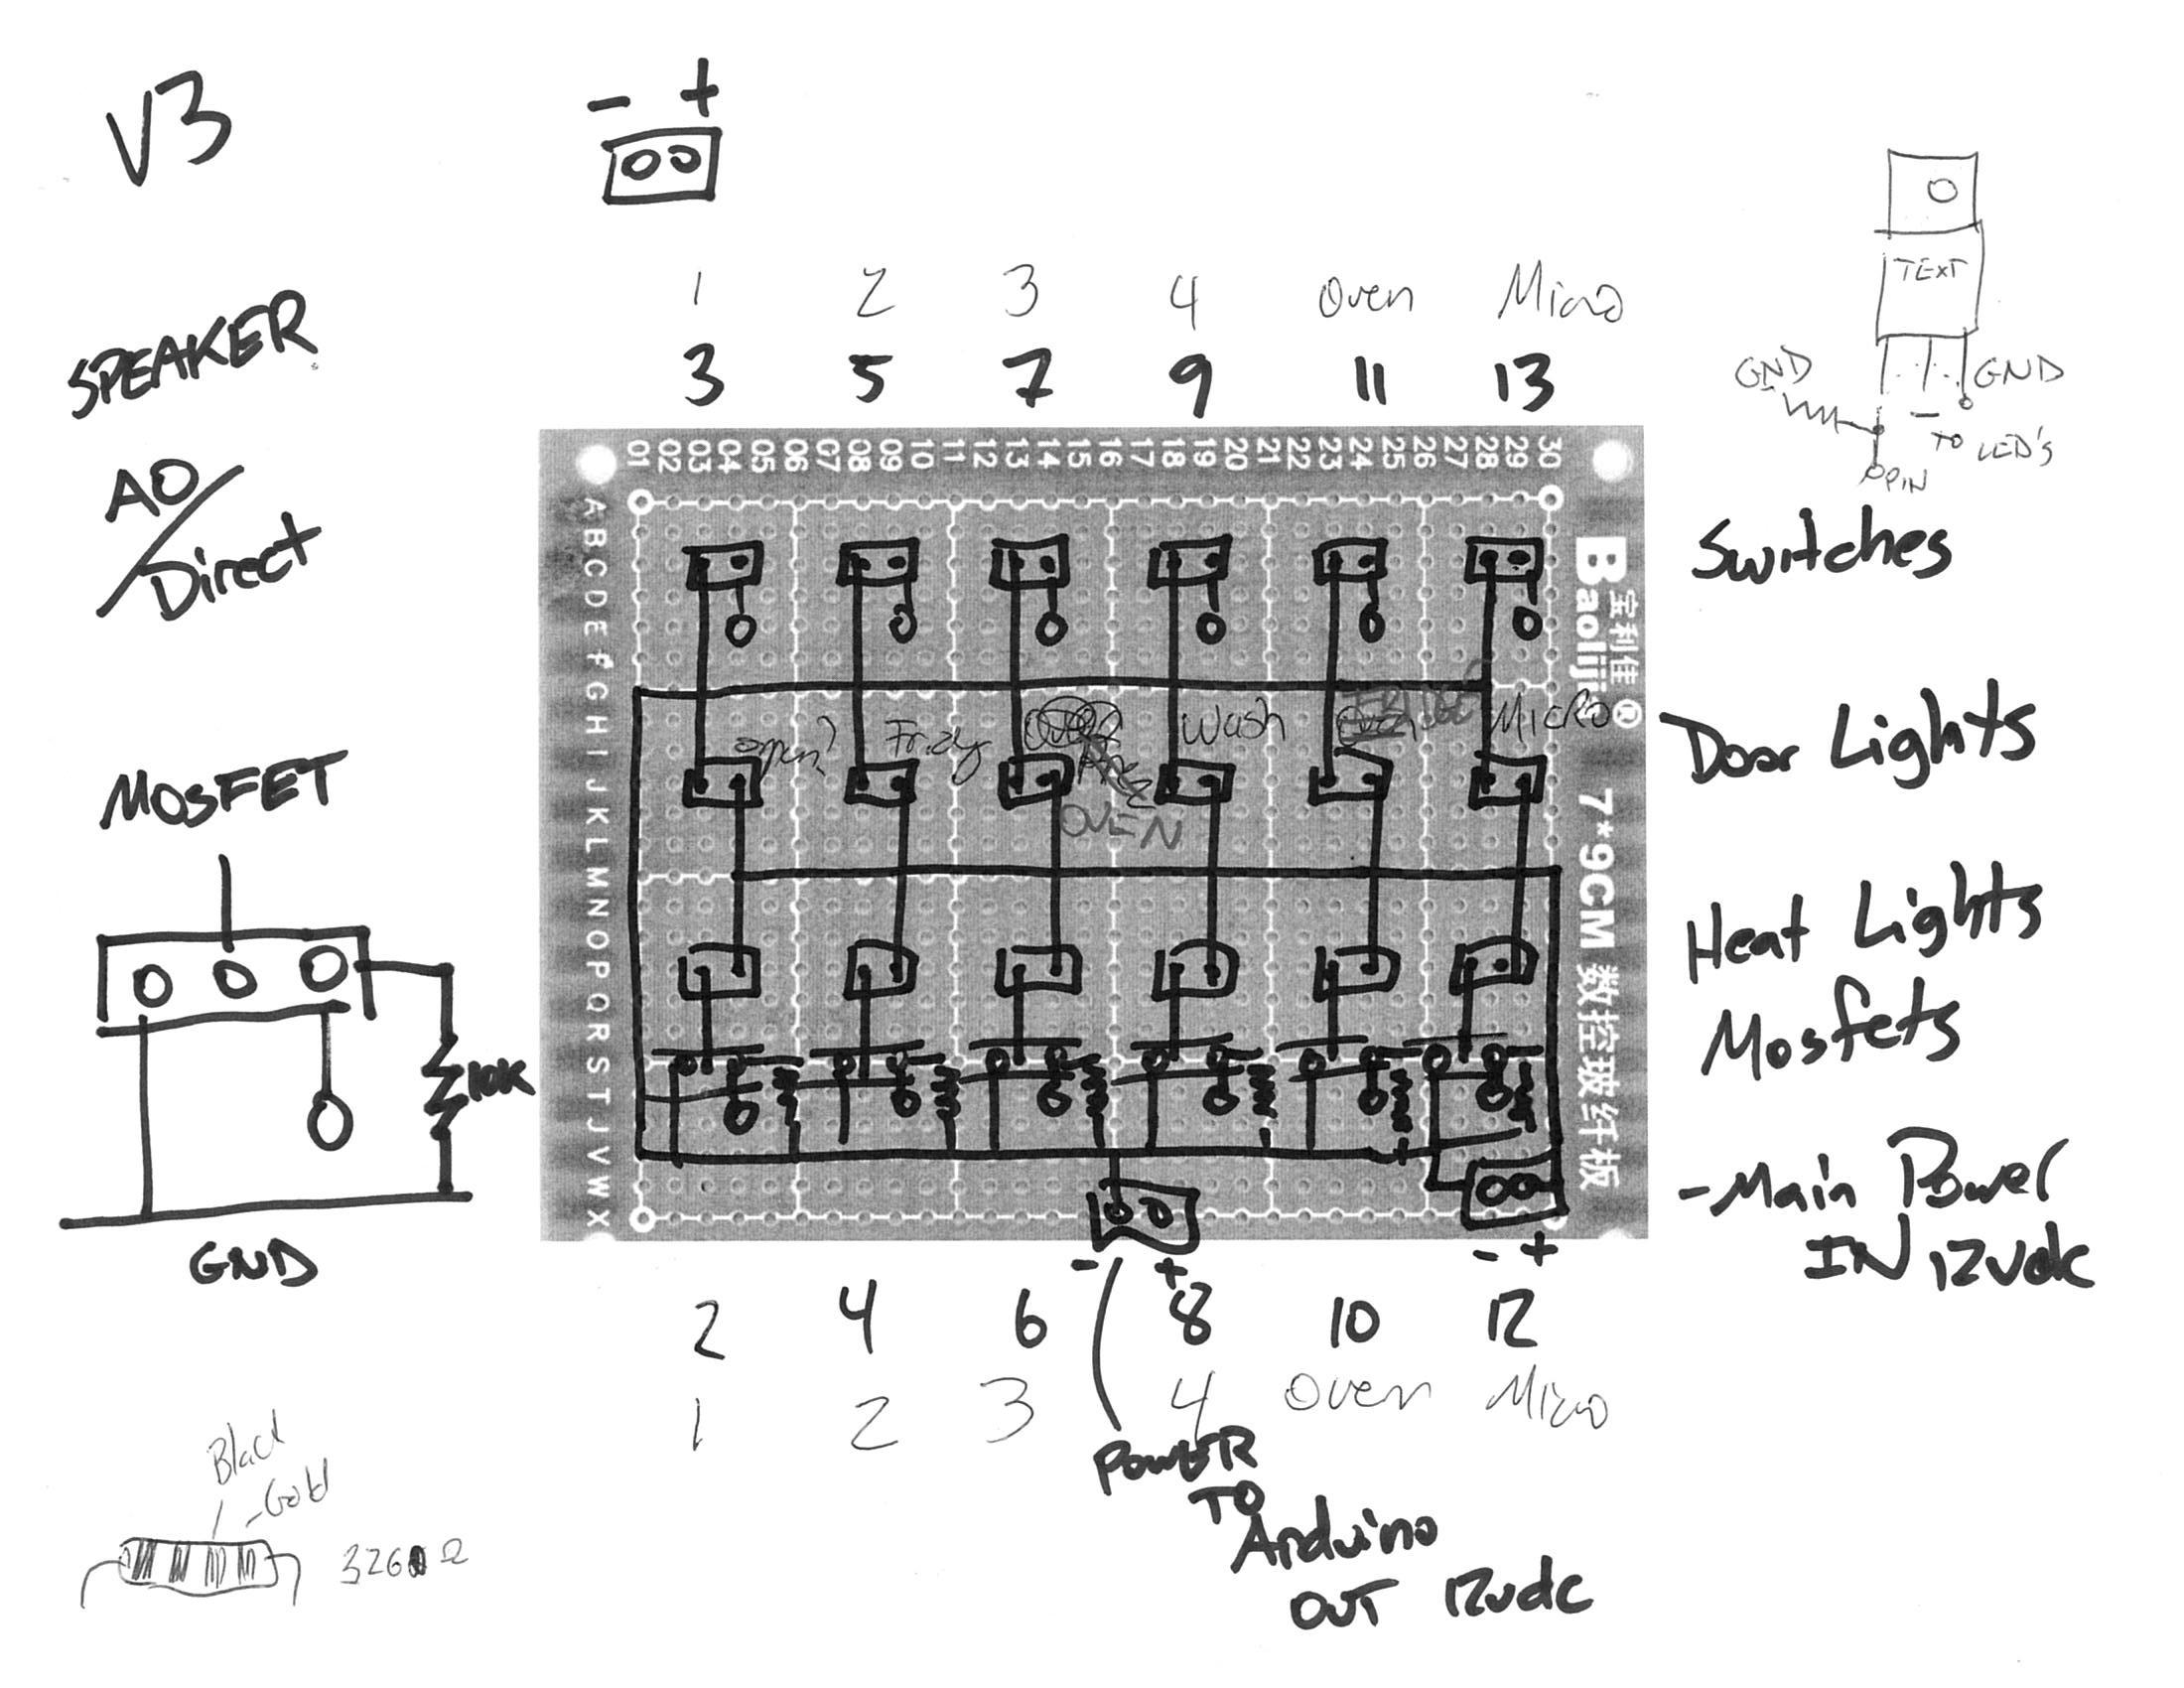 V3
- +
1 2 3 4 Oven Micro
3 5 7 9 11 13
SPEAKER
AO/Direct
MOSFET
10K
GND
TEXT
GND
GND
TO LED'S
PIN
01 02 03 04 05 06 07 08 09 10 11 12 13 14 15 16 17 18 19 20 21 22 23 24 25 26 27 28 29 30
A B C D E F G H I J K L M N O P Q R S T J V W X
宝利佳®
Baoliji
7*9CM 数控玻纤板
open? Wash MICRO
OVEN
Switches
Door Lights
Heat Lights
Mosfets
-Main Power
IN 12vdc
- +
- +
2 4 6 8 10 12
1 2 3 4 Oven Micro
POWER
TO
Arduino
OUT 12vdc
Black
-Gold
Ω